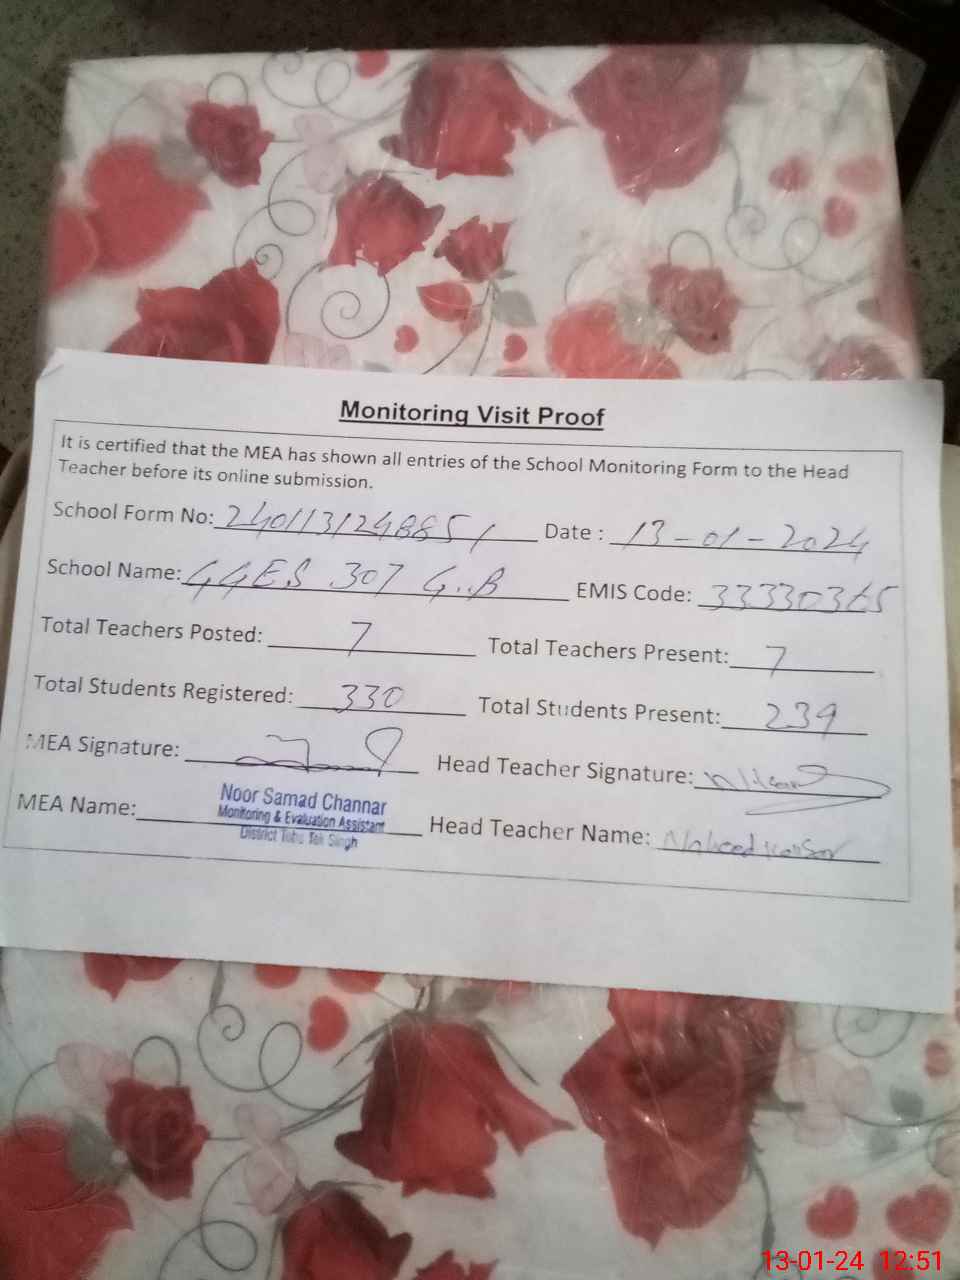 Monitoring Visit Proof
It is certified that the MEA has shown all entries of the School Monitoring Form to the Head
Teacher before its online submission.
School Form No: 240113124885 Date : 13-01-2024
School Name: GGES 307 G.B EMIS Code: 33330365
Total Teachers Posted: 7 Total Teachers Present: 7
Total Students Registered: 330 Total Students Present: 239
MEA Signature: Head Teacher Signature:
MEA Name: Noor Samad Channar
Monitoring & Evaluation Assistant
District Toba Tek Singh
Head Teacher Name: Naheed Kausar
13-01-24 12:51